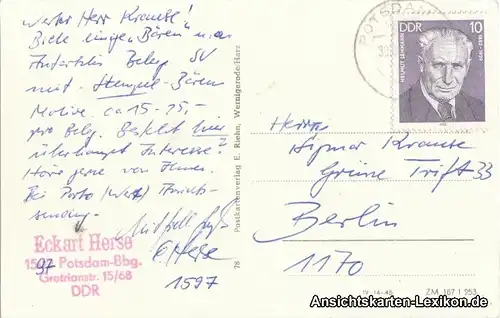 Werter Herr Krause!
Biete einige „Bären" u. a.
Antarktis Beleg SV
mit Stempel-Bären
Motive ca. 15.-75,-
pro Belg. Besteht hier
überhaupt Interesse?
Höre gerne von Ihnen.
Bei Porto (Wert) Ansichts-
sendung.
Eckart Herse
1597 Potsdam-Bbg.
Grotrianstr. 15/68
DDR
E. Herse
1597
78 Postkartenverlag E. Riehn, Wernigerode/Harz
POTSDAM
DDR 10
Herrn
Sigmar Krause
Grüne Trift 33
Berlin
1170
IV-14-45 ZM 167 1 953
Ansichtskarten-Lexikon.de